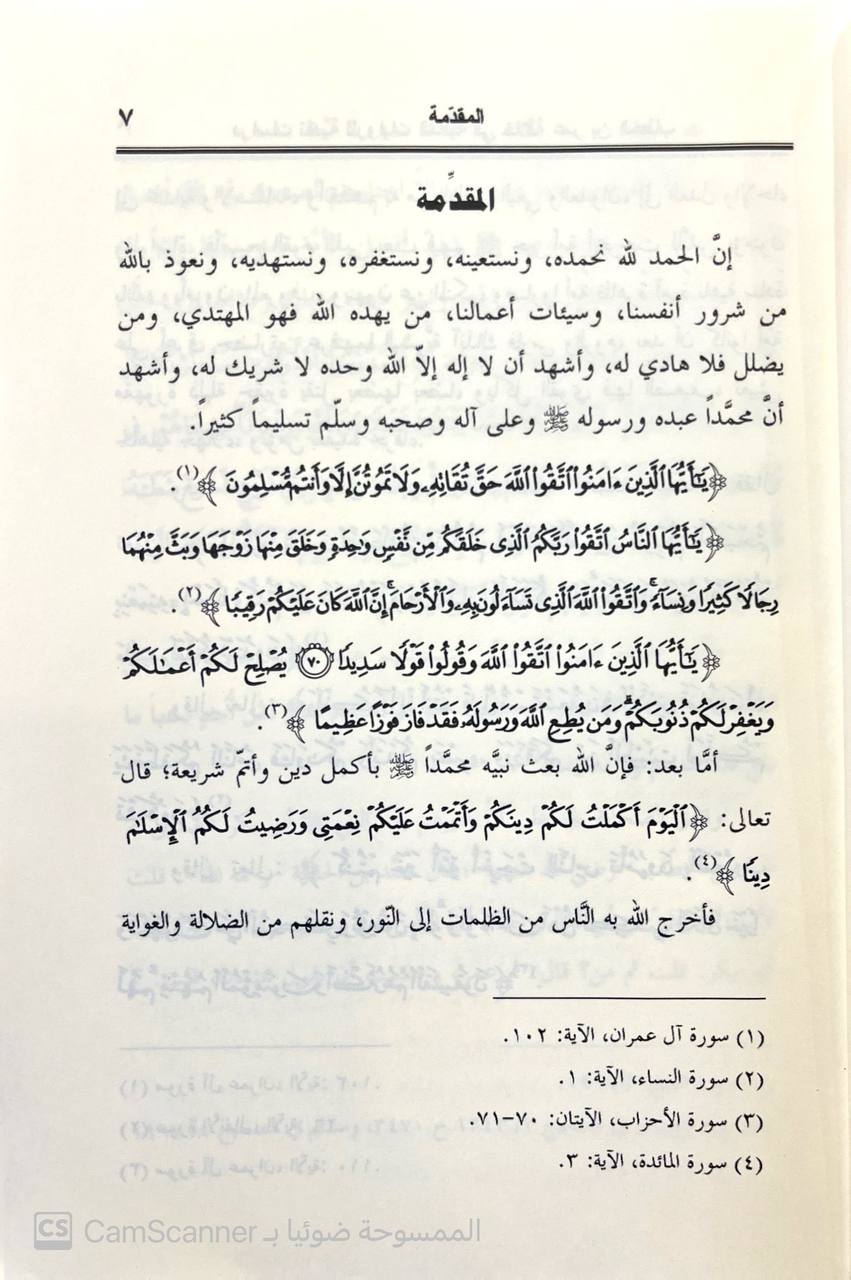 المقدّمة ٧
المقدِّمة
إنَّ الحمد لله نحمده، ونستعينه، ونستغفره، ونستهديه، ونعوذ بالله
من شرور أنفسنا، وسيئات أعمالنا، من يهده الله فهو المهتدي، ومن
يضلل فلا هادي له، وأشهد أن لا إله إلاّ الله وحده لا شريك له، وأشهد
أنَّ محمَّداً عبده ورسوله ﷺ وعلى آله وصحبه وسلّم تسليماً كثيراً.
﴿ يَٰٓأَيُّهَا ٱلَّذِينَ ءَامَنُوا۟ ٱتَّقُوا۟ ٱللَّهَ حَقَّ تُقَاتِهِۦ وَلَا تَمُوتُنَّ إِلَّا وَأَنتُم مُّسْلِمُونَ ﴾(١).
﴿ يَٰٓأَيُّهَا ٱلنَّاسُ ٱتَّقُوا۟ رَبَّكُمُ ٱلَّذِى خَلَقَكُم مِّن نَّفْسٍ وَٰحِدَةٍ وَخَلَقَ مِنْهَا زَوْجَهَا وَبَثَّ مِنْهُمَا
رِجَالًا كَثِيرًا وَنِسَآءً ۚ وَٱتَّقُوا۟ ٱللَّهَ ٱلَّذِى تَسَآءَلُونَ بِهِۦ وَٱلْأَرْحَامَ ۚ إِنَّ ٱللَّهَ كَانَ عَلَيْكُمْ رَقِيبًا ﴾(٢).
﴿ يَٰٓأَيُّهَا ٱلَّذِينَ ءَامَنُوا۟ ٱتَّقُوا۟ ٱللَّهَ وَقُولُوا۟ قَوْلًا سَدِيدًا ٧٠ يُصْلِحْ لَكُمْ أَعْمَٰلَكُمْ
وَيَغْفِرْ لَكُمْ ذُنُوبَكُمْ ۗ وَمَن يُطِعِ ٱللَّهَ وَرَسُولَهُۥ فَقَدْ فَازَ فَوْزًا عَظِيمًا ﴾(٣).
أمَّا بعد: فإنَّ الله بعث نبيَّه محمَّداً ﷺ بأكمل دين وأتمّ شريعة؛ قال
تعالى: ﴿ ٱلْيَوْمَ أَكْمَلْتُ لَكُمْ دِينَكُمْ وَأَتْمَمْتُ عَلَيْكُمْ نِعْمَتِى وَرَضِيتُ لَكُمُ ٱلْإِسْلَٰمَ
دِينًا ﴾(٤).
فأخرج الله به النَّاس من الظلمات إلى النّور، ونقلهم من الضلالة والغواية
(١) سورة آل عمران، الآية: ١٠٢.
(٢) سورة النساء، الآية: ١.
(٣) سورة الأحزاب، الآيتان: ٧٠-٧١.
(٤) سورة المائدة، الآية: ٣.
CS الممسوحة ضوئيا بـ CamScanner